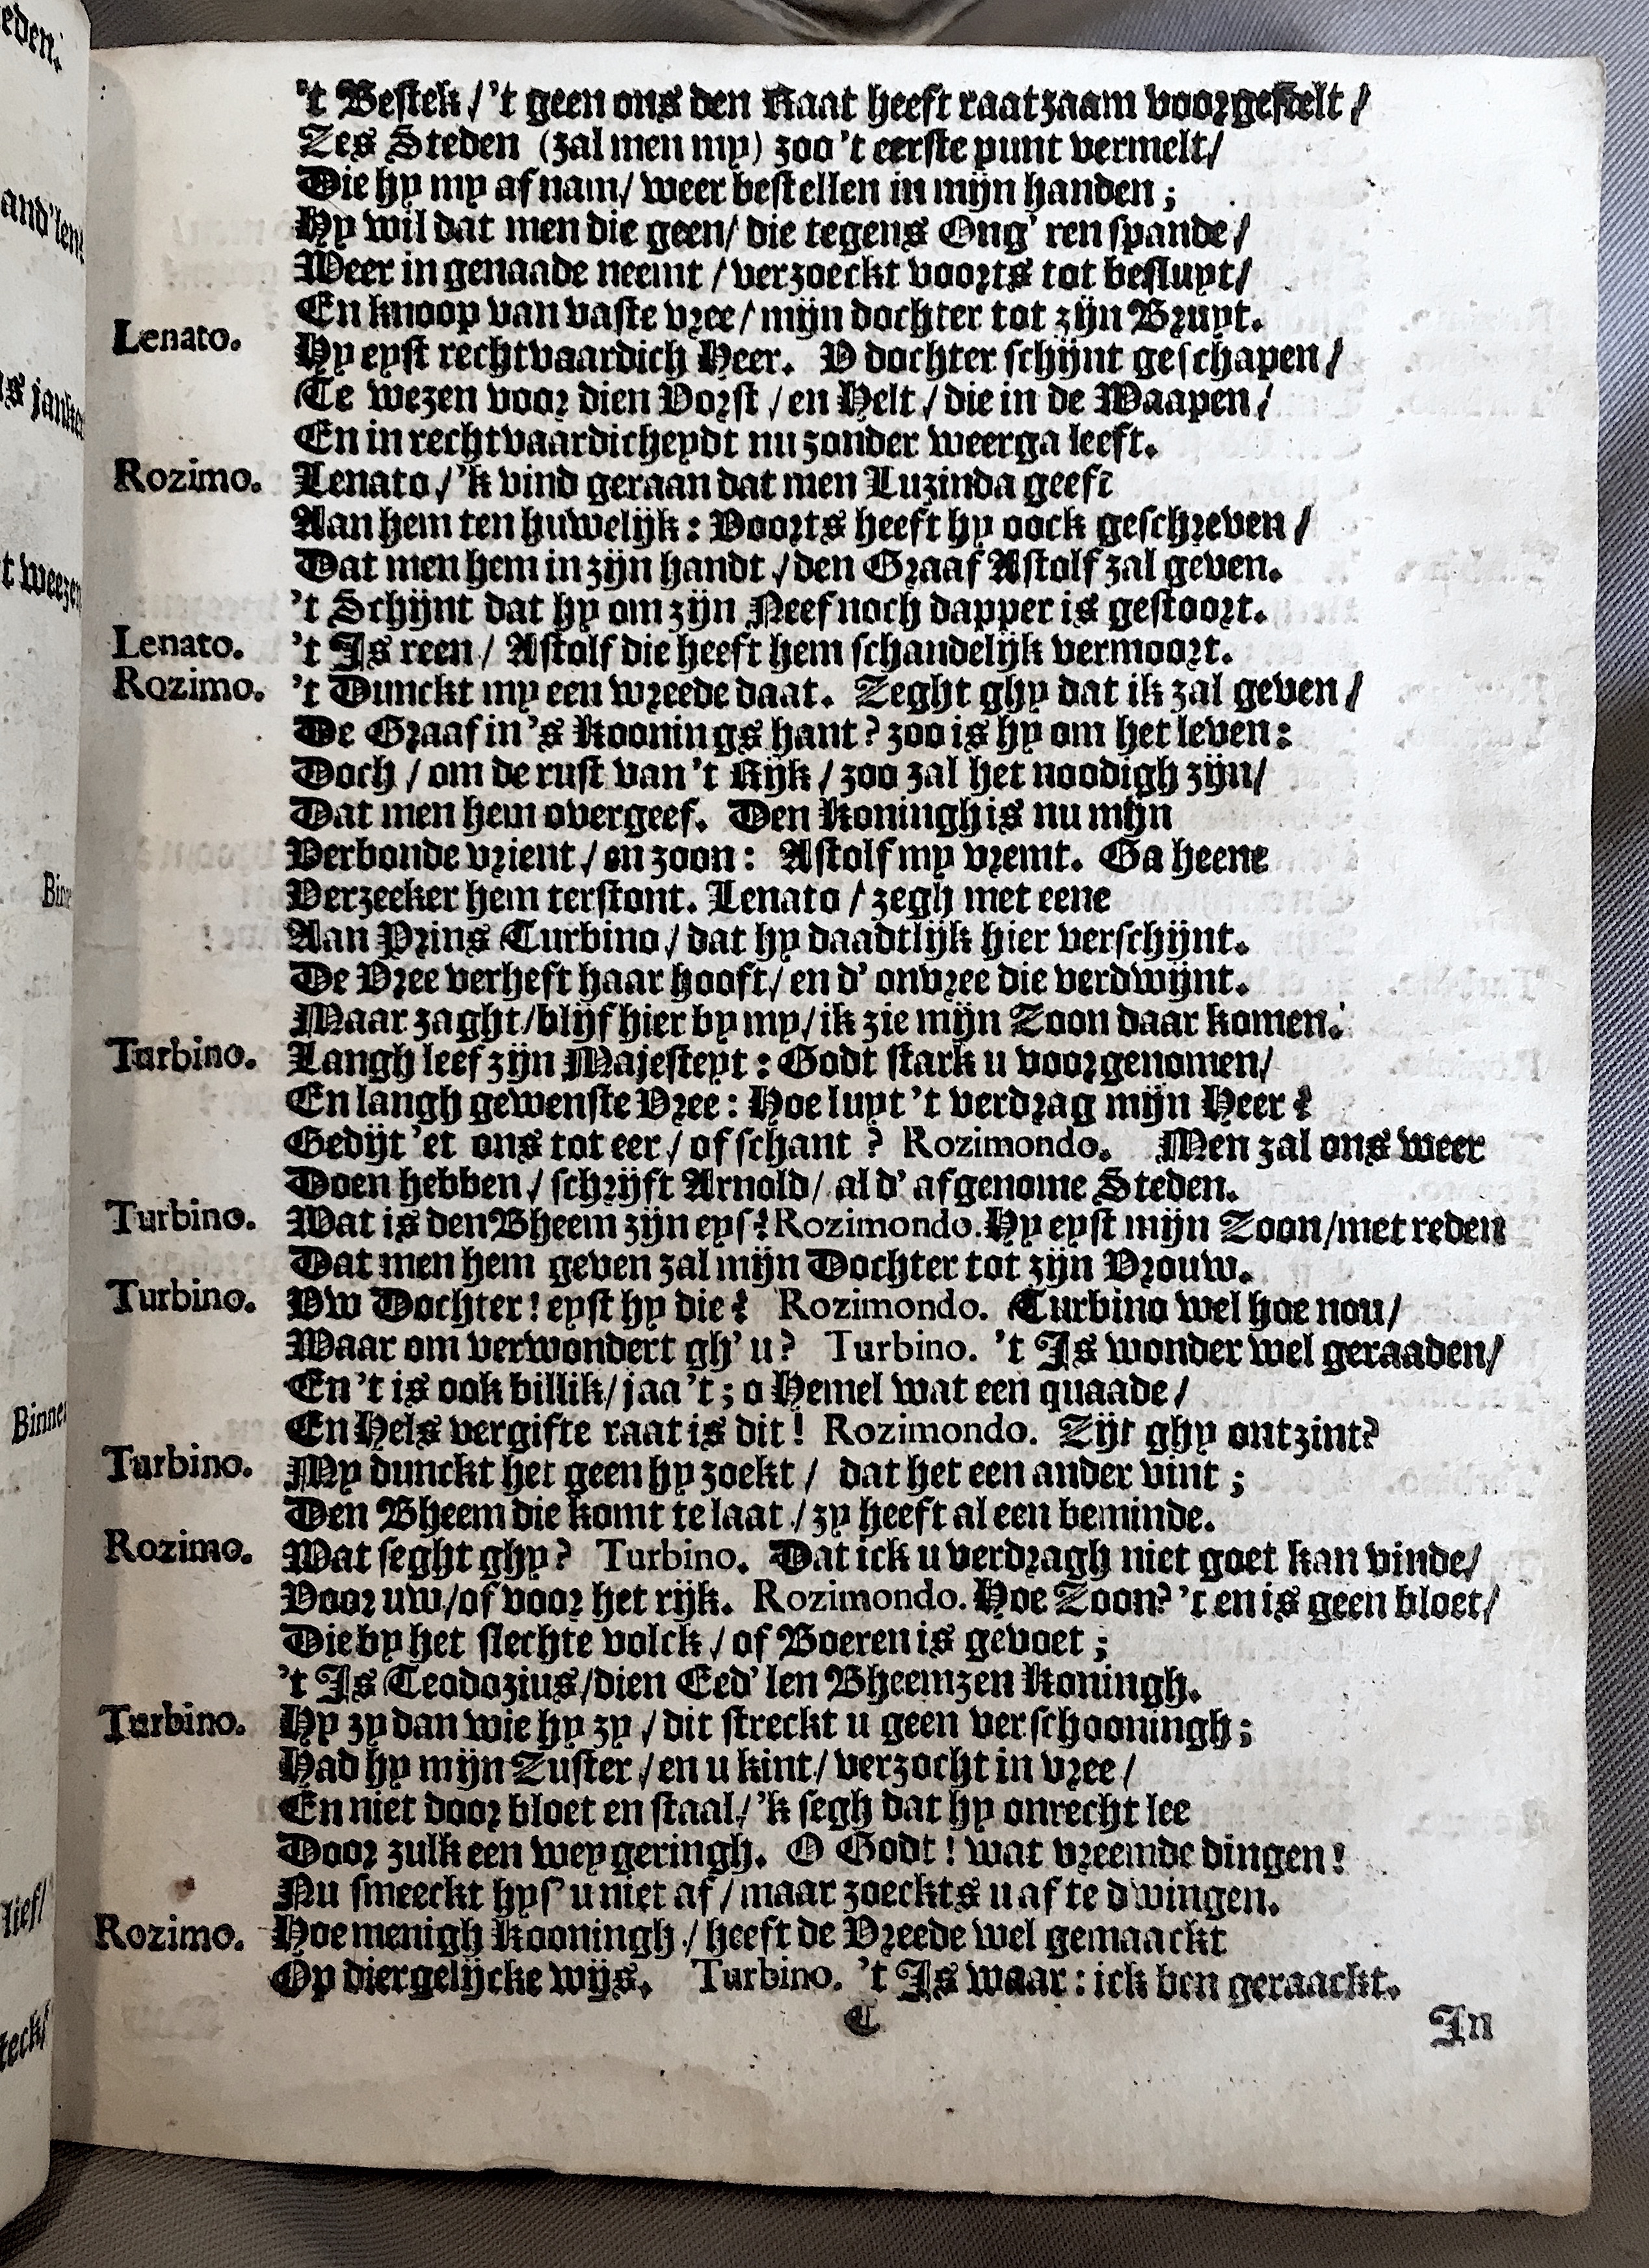 't Bestek / 't geen ons den Raat heeft raatzaam voorgestelt /
Zes Steden (zal men my) zoo 't eerste punt vermelt /
Die hy my af nam / weer bestellen in mijn handen ;
Hy wil dat men die geen / die tegens Ong' ren spande /
Weer in genaade neemt / verzoeckt voorts tot besluyt /
En knoop van vaste vree / mijn dochter tot zijn Bruyt.
Lenato. Hy eyst rechtvaardich Heer. V dochter schijnt geschapen /
Te wezen voor dien Vorst / en Helt / die in de Waapen /
En in rechtvaardicheydt nu zonder weerga leeft.
Rozimo. Lenato / 'k vind geraan dat men Luzinda geeft
Aan hem ten huwelijk : Voorts heeft hy oock geschreven /
Dat men hem in zijn handt / den Graaf Astolf zal geven.
't Schijnt dat hy om zijn Neef noch dapper is gestoort.
Lenato. 't Is reen / Astolf die heeft hem schandelijk vermoort.
Rozimo. 't Dunckt my een wreede daat. Zeght ghy dat ik zal geven /
De Graaf in 's Koonings hant ? zoo is hy om het leven :
Doch / om de rust van 't Rijk / zoo zal het noodigh zijn /
Dat men hem overgeef. Den Koningh is nu mijn
Verbonde vrient / en zoon : Astolf my vremt. Ga heene
Verzeeker hem terstont. Lenato / zegh met eene
Aan Prins Turbino / dat hy daadtlijk hier verschijnt.
De Vree verheft haar hooft / en d' onvree die verdwijnt.
Maar zaght / blijf hier by my / ik zie mijn Zoon daar komen.
Turbino. Langh leef zijn Majesteyt : Godt stark u voorgenomen /
En langh gewenste Vree : Hoe luyt 't verdrag mijn Heer ?
Gedijt 'et ons tot eer / of schant ? Rozimondo. Men zal ons weer
Doen hebben / schrijft Arnold / al d' afgenome Steden.
Turbino. Wat is den Bheem zijn eys ? Rozimondo. Hy eyst mijn Zoon / met reden
Dat men hem geven zal mijn Dochter tot zijn Vrouw.
Turbino. Vw Dochter ! eyst hy die ? Rozimondo. Turbino wel hoe nou /
Waar om verwondert gh' u ? Turbino. 't Is wonder wel geraaden /
En 't is ook billik / jaa 't ; o Hemel wat een quaade /
En Hels vergifte raat is dit ! Rozimondo. Zijt ghy ontzint ?
Turbino. My dunckt het geen hy zoekt / dat het een ander vint ;
Den Bheem die komt te laat / zy heeft al een beminde.
Rozimo. Wat seght ghy ? Turbino. Dat ick u verdragh niet goet kan vinde /
Voor uw / of voor het rijk. Rozimondo. Hoe Zoon ? 't en is geen bloet /
Die by het slechte volck / of Boeren is gevoet ;
't Is Teodozius / dien Eed' len Bheemzen Koningh.
Turbino. Hy zy dan wie hy zy / dit streckt u geen verschooningh ;
Had hy mijn Zuster / en u kint / verzocht in vree /
En niet door bloet en staal / 'k segh dat hy onrecht lee
Door zulk een weygeringh. O Godt ! wat vreemde dingen !
Nu smeeckt hys' u niet af / maar zoeckts u af te dwingen.
Rozimo. Hoe menigh Kooningh / heeft de Vreede wel gemaackt
Op diergelijcke wijs. Turbino. 't Is waar : ick ben geraackt.
C In